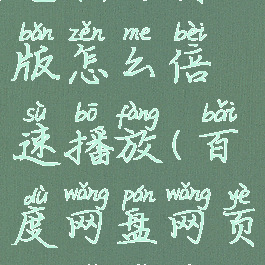 bǎn zěn me bèi
版怎么倍
sù bō fàng bǎi
速播放(百
dù wǎng pán wǎng yè
度网盘网页